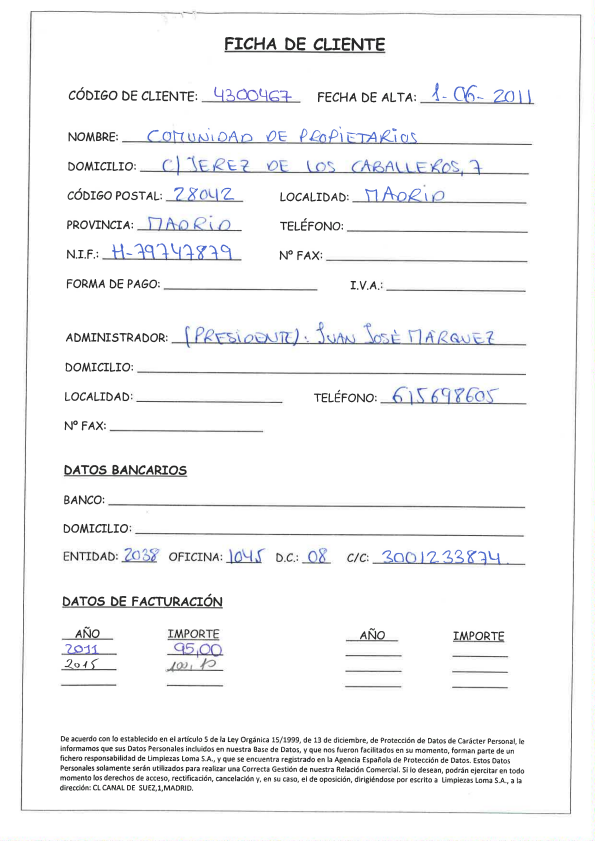 FICHA DE CLIENTE
CÓDIGO DE CLIENTE: 4300467 FECHA DE ALTA: 1-06-2011
NOMBRE: COMUNIDAD DE PROPIETARIOS
DOMICILIO: C/ JEREZ DE LOS CABALLEROS, 7
CÓDIGO POSTAL: 28042 LOCALIDAD: MADRID
PROVINCIA: MADRID TELÉFONO:
N.I.F.: H-79747879 Nº FAX:
FORMA DE PAGO: I.V.A.:
ADMINISTRADOR: (PRESIDENTE): JUAN JOSÉ MÁRQUEZ
DOMICILIO:
LOCALIDAD: TELÉFONO: 615698605
Nº FAX:
DATOS BANCARIOS
BANCO:
DOMICILIO:
ENTIDAD: 2038 OFICINA: 1045 D.C.: 08 C/C: 3001233874
DATOS DE FACTURACIÓN
AÑO IMPORTE AÑO IMPORTE
2011 95,00
2015
De acuerdo con lo establecido en el artículo 5 de la Ley Orgánica 15/1999, de 13 de diciembre, de Protección de Datos de Carácter Personal, le
informamos que sus Datos Personales incluidos en nuestra Base de Datos, y que nos fueron facilitados en su momento, forman parte de un
fichero responsabilidad de Limpiezas Loma S.A., y que se encuentra registrado en la Agencia Española de Protección de Datos. Estos Datos
Personales solamente serán utilizados para realizar una Correcta Gestión de nuestra Relación Comercial. Si lo desean, podrán ejercitar en todo
momento los derechos de acceso, rectificación, cancelación y, en su caso, el de oposición, dirigiéndose por escrito a Limpiezas Loma S.A., a la
dirección: CL CANAL DE SUEZ,1,MADRID.